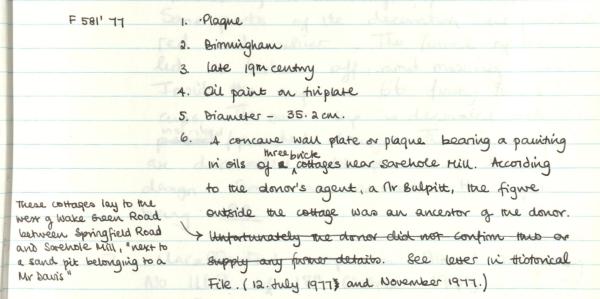 F 581' 77
1. Plaque
2. Birmingham
3. Late 19th century
4. Oil paint on tinplate
5. Diameter - 35.2cm.
6. A concave wall plate or plaque bearing a painting
in oils of a three brick cottages near Sarehole Mill. According
to the donor's agent, a Mr Bulpitt, the figure
outside the cottage was an ancestor of the donor.
Unfortunately the donor did not confirm this or
supply any further details. See letter in Historical
File. (12. July 1977) and November 1977.)
These cottages lay to the
west of Wake Green Road
between Springfield Road
and Sarehole Mill, "next to
a sand pit belonging to a
Mr Davis"